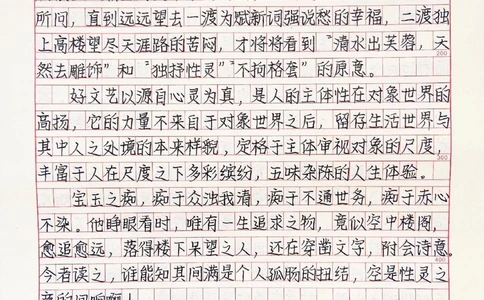 所问，直到远远望去一渡为赋新词强说愁的幸福，二渡独
上高楼望尽天涯路的苦闷，才将将看到“清水出芙蓉，天
然去雕饰”和“独抒性灵”“不拘格套”的原意。
200
好文艺以源自心灵为真，是人的主体性在对象世界的
高扬，它的力量不来自于对象世界之后，留存生活世界与
其中人之处境的本来样貌，定格于主体审视对象的尺度，
300
丰富于人在尺度之下多彩缤纷，五味杂陈的人生体验。
宝玉之痴，痴于众浊我清，痴于不通世务，痴于赤心
不染。他睁眼看时，唯有一生追求之物，竟似空中楼阁，
愈追愈远，落得楼下呆望之人，还在穿凿文字，附会诗意。
400
今者读之，谁能知其间满是个人孤肠的扭结，空是性灵之